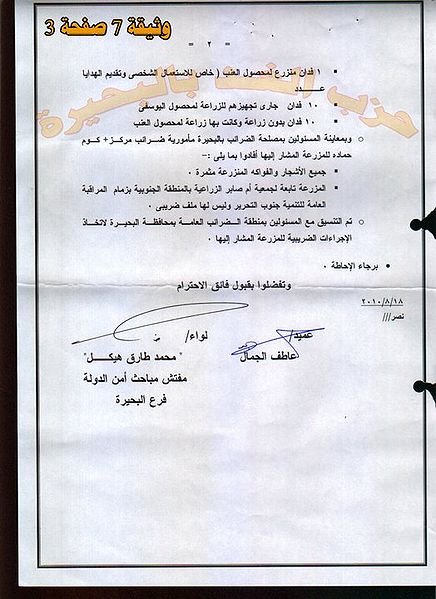 وثيقة 7 صفحة 3
= ٢ =
حزب الغد بالبحيرة
١ فدان منزرع لمحصول العنب ( خاص للاستعمال الشخصى وتقديم الهدايا
عـــدد
١٠ فدان جارى تجهيزهم للزراعة لمحصول اليوسفى
١٠ فدان بدون زراعة وكانت بها زراعة لمحصول العنب
وبمعاينة المسئولين بمصلحة الضرائب بالبحيرة مأمورية ضرائب مركز+ كوم
حماده للمزرعة المشار إليها أفادوا بما يلى :–
جميع الأشجار والفواكه المنزرعة مثمرة ٠
المزرعة تابعة لجمعية أم صابر الزراعية بالمنطقة الجنوبية بزمام المراقبة
العامة للتنمية جنوب التحرير وليس لها ملف ضريبى ٠
تم التنسيق مع المسئولين بمنطقة الـضرائب العامـة بمحافظـة البحيـرة لاتخـاذ
الإجراءات الضريبية للمزرعة المشار إليها ٠
برجاء الإحاطة ٠
وتفضلوا بقبول فائق الاحترام
٢٠١٠/٨/١٨
نصر///
عميد/
لواء/
عاطف الجمال
" محمد طارق هيكـــل "
مفتش مباحث أمن الدولة
فرع البحيرة